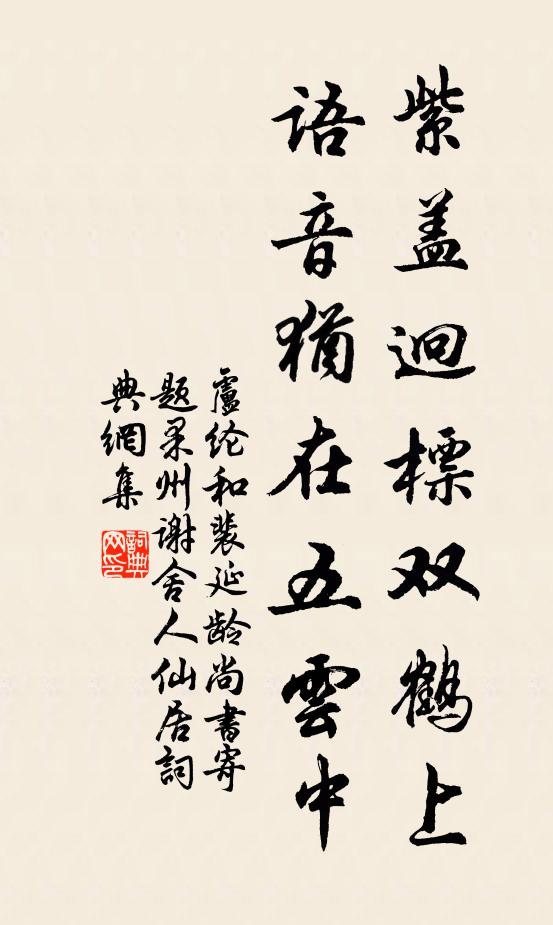 紫盖迴標双鶴上
語音猶在五雲中
盧纶和裴延龄尚書寄
题果州谢舍人仙居詞
典網集
詞典网印